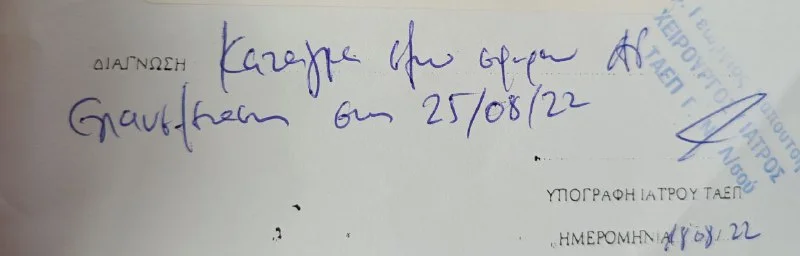 ΔΙΑΓΝΩΣΗ Κάταγμα έξω σφυρού ΑΡ
Επανεξέταση στις 25/08/22
ΧΕΙΡΟΥΡΓΟΣ ΙΑΤΡΟΣ
ΤΑΕΠ Γ.
ΥΠΟΓΡΑΦΗ ΙΑΤΡΟΥ ΤΑΕΠ
ΗΜΕΡΟΜΗΝΙΑ 18/08/22